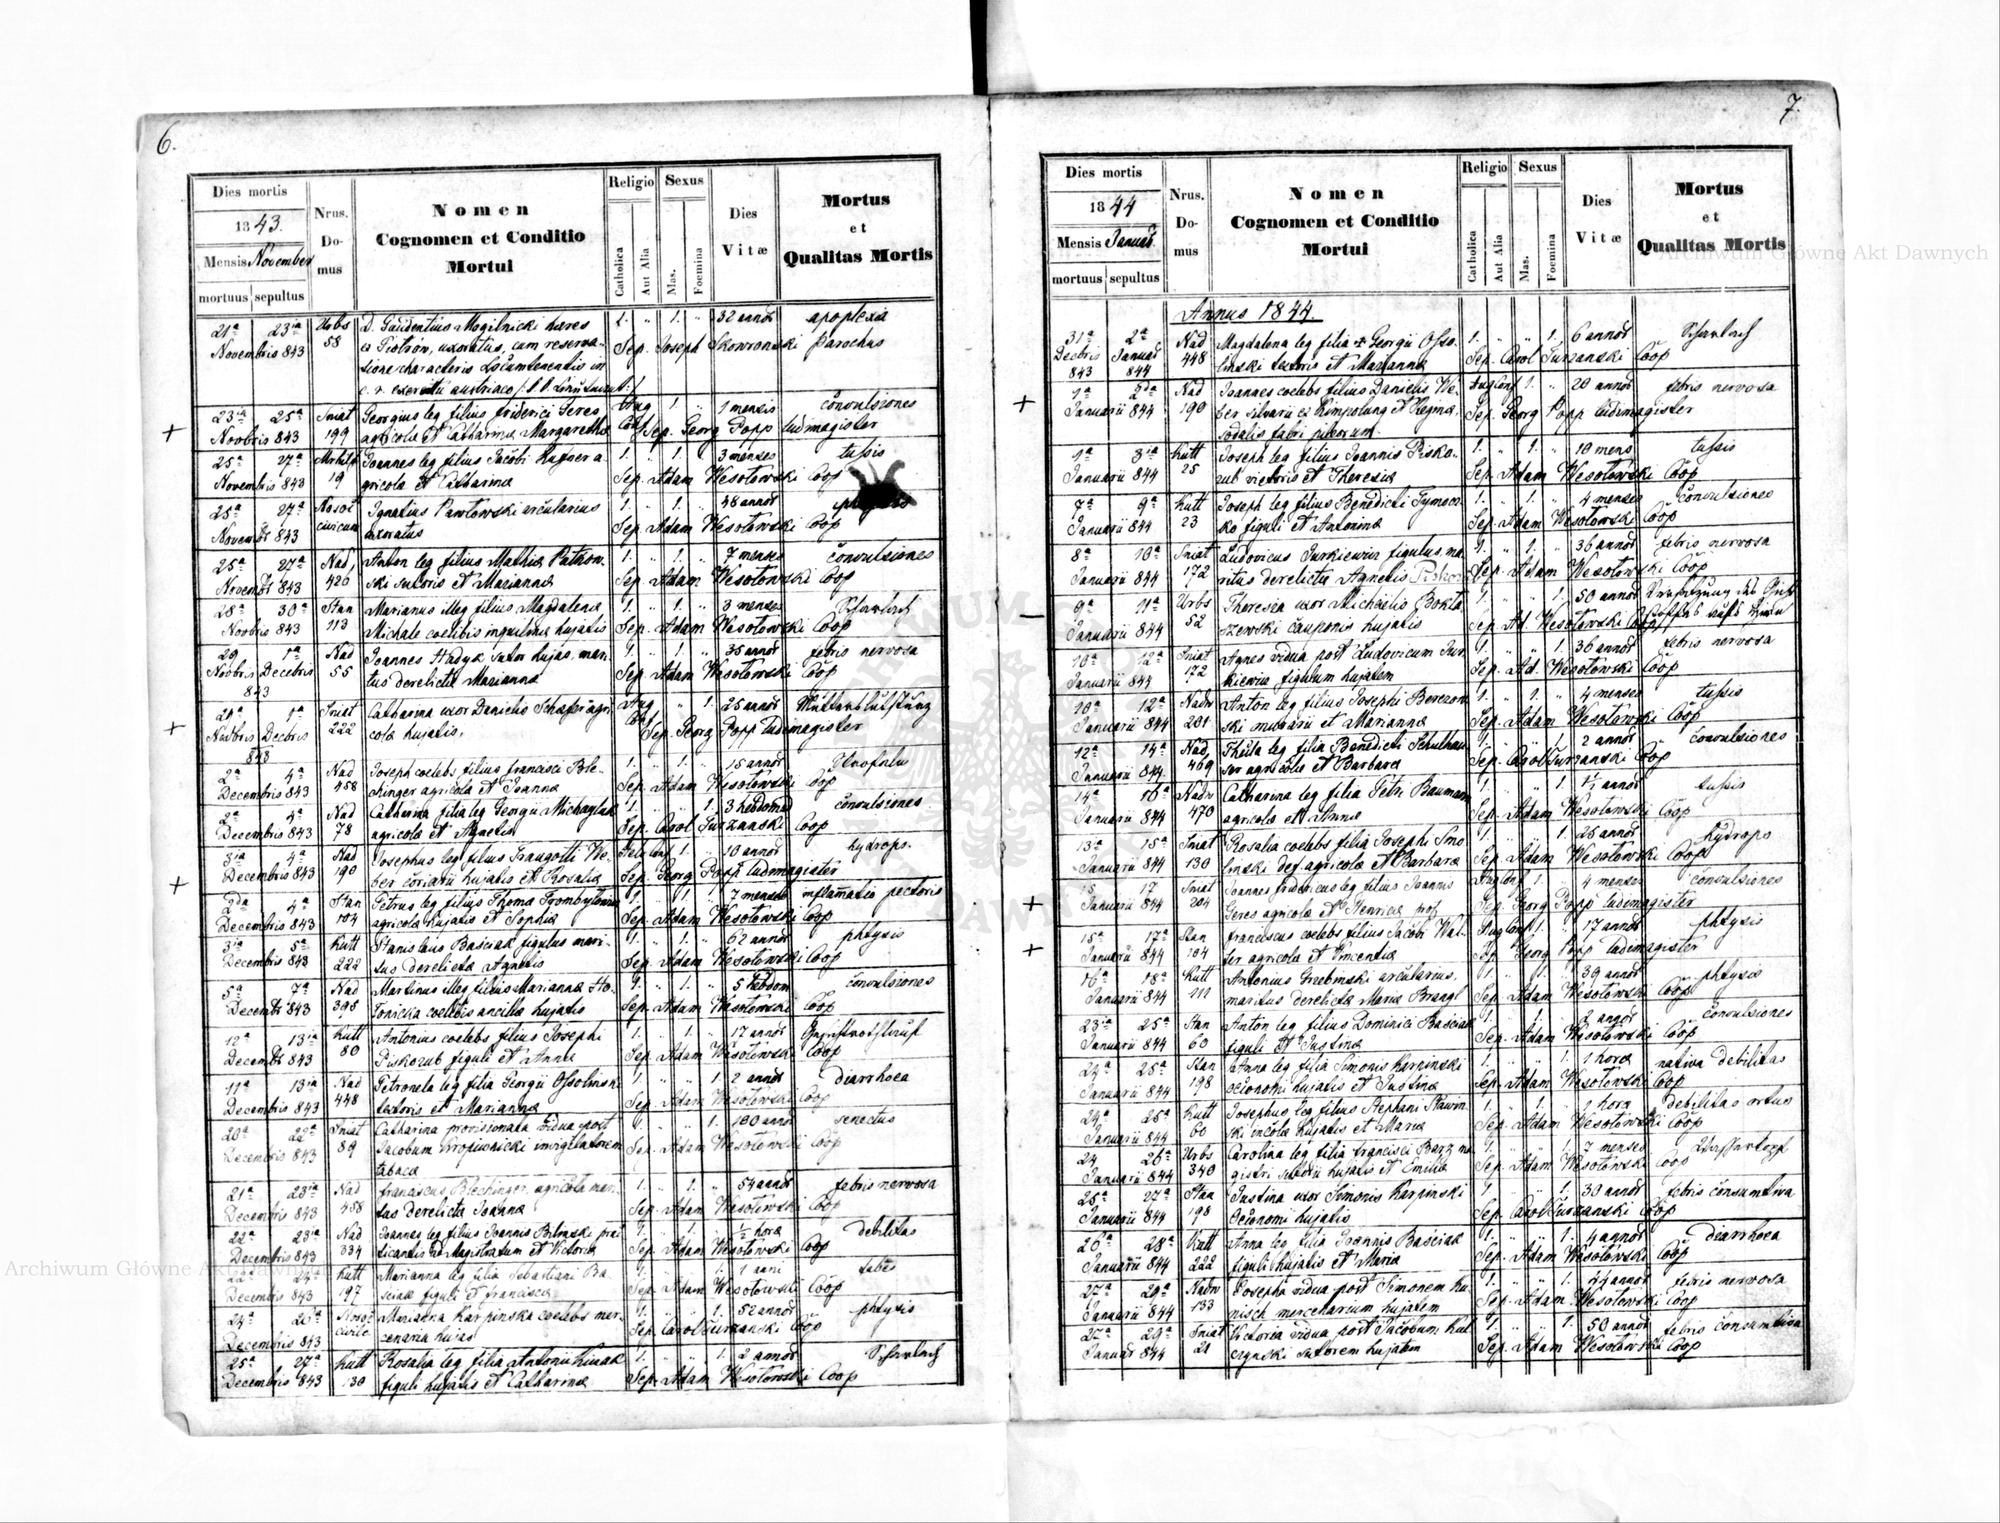 6.
Dies mortis
1843.
Mensis November
mortuus sepultus
Nrus. Domus
Nomen
Cognomen et Conditio
Mortui
Religio
Catholica
Aut Alia
Sexus
Mas.
Foemina
Dies
Vitæ
Mortus
et
Qualitas Mortis
21a 23ia Urbs D. Gaudentius Mogilnicki hæres 1. " 1. " 32 annor apoplexia
Novembris 843 58 ex Piotrów, uxoratus, cum reserva- Sep. Joseph Skowronski Parochus
tione characteris Locumtenentis in
c. r. exercitu austriaco
+ 23ia 25a Sniat Georgius leg filius friderici Geres Aug Conf 1 " 1 mensis convulsiones
Novbris 843 199 agricola et Catharina Margaretha Sep. Georg Popp ludimagister
25a 27a Joannes leg filius Jacobi Hafner a- 1. " 1. " 3 menses tussis
Novembris 843 19 gricola et Catharina Sep. Adam Wesołowski Coop
25a 27a Ignatius Pawłowski arcularius 1. " 1. " 48 annor
Novembr 843 uxoratus Sep. Adam Wesołowski Coop
25a 27a Nad, Anton leg filius Mathiæ 1. " 1. " 7 menses convulsiones
Novembr 843 426 ski sutoris et Marianna Sep. Adam Wesołowski Coop
28a 30a Stan Marianus illeg filius Magdalena 1. " 1. " 3 menses Scharlach
Novbris 843 113 Michale coelibis inquilina hujatis Sep. Adam Wesołowski Coop
29 1a Nad Joannes sutor hujas, mari- 1. " 1. " 35 annor febris nervosa
Novbris Decebris 55 tus derelicta Marianna Sep. Adam Wesołowski Coop
843
+ 29a 1a Sniat Catharina uxor Danielis Schæfer agri- Aug Conf " 1. 25 annor
Decbris 222 cola hujatis, Sep. Georg Popp ludimagister
843
2a 4a Nad Joseph coelebs, filius francisci Ble- 1. " 1. " 15 annor
Decembris 843 458 chinger agricola et Joanna Sep. Adam Wesołowski Coop
2a 4a Nad Catharina filia leg Georgii Michaylak 1. " " 1. 3 hebdomad convulsiones
Decembris 843 78 agricola et Agnetis Sep. Carol Turzanski Coop
+ 3ia 4a Nad Josephus leg filius Traugotti We- 1. " 10 annor hydrops.
Decembris 843 190 ber coriarii hujatis et Rosalia Sep. Georg Popp ludimagister
2da 4a Stan Petrus leg filius Thoma 1. " 1. " 7 menses inflamatio pectoris
Decembris 843 104 agricola hujatis et Sophia Sep. Adam Wesołowski Coop
3ia 5a Kutt Stanislaus Baściak figulus mari- 1. " 1. " 62 annor phtysis
Decembris 843 222 tus derelicta Agnetis Sep. Adam Wesołowski Coop
5a 7a Nad Martinus illeg filius Marianna Ho- 1. " 1. " 5 hebdom convulsiones
Decembr 843 398 coelebis ancilla hujatis Sep. Adam Wesołowski Coop
12a 13ia Kutt Antonius coelebs filius Josephi 1. " 1. " 17 annor
Decembr 843 80 Piskozub figuli et Anna Sep. Adam Wesołowski Coop
11a 13ia Nad Petronela leg filia Georgii Ossolinski 1. " " 1. 2 annor diarrhoea
Decembris 843 448 textoris et Marianna Sep. Adam Wesołowski Coop
20a 22a Sniat Catharina provisionata vidua post 1. " " 1. 100 annor senectus
Decembris 843 89 Jacobum Kropiwnicki invigilatorem Sep. Adam Wesołowski Coop
tabaca
21a 23ia Nad franciscus Blechinger, agricola mari- 1. " 1. " 54 annor febris nervosa
Decembris 843 458 tus derelicta Joanna Sep. Adam Wesołowski Coop
22a 23ia Nad Joannes leg filius Joannis Bilinski 1. " 1. " ½ hora debilitas
Decembris 843 334 Magistratum et Victoria Sep. Adam Wesołowski Coop
22a 24a Kutt Marianna leg filia Sebastiani Ba- 1. " " 1. 1 anni tabes
Decembris 843 197 ściak figuli et francisca Sep. Adam Wesołowski Coop
24a 26a Marianna Karpinska coelebs mer- 1. " " 1. 52 annor phtysis
Decembris 843 cenaria hujas Sep. Carol Turzanski Coop
25a 27a Kutt Rosalia leg filia Antonii 1. " " 1. 2 annor Scharlach
Decembris 843 130 figuli hujatis et Catharina Sep. Adam Wesołowski Coop
7.
Dies mortis
1844
Mensis Januar.
mortuus sepultus
Nrus. Domus
Nomen
Cognomen et Conditio
Mortui
Religio
Catholica
Aut Alia
Sexus
Mas.
Foemina
Dies
Vitæ
Mortus
et
Qualitas Mortis
Annus 1844.
31a 2a Nad Magdalena leg filia Georgii Osso- 1. " " 1. 6 annor Scharlach
Decbris Januar 448 linski textoris et Marianna Sep. Carol Turzanski Coop
843 844
+ 1a 2da Nad Joannes coelebs filius Danielis We- Aug Conf 1. " 20 annor febris nervosa
Januarii 844 190 ber silvarii ex Kimpolung et Regina Sep. Georg Popp ludimagister
Sodalis fabri pileorum.
1a 3ia Kutt Joseph leg filius Joannis Pisko- 1. " 1. " 10 mens tussis
Januarii 844 25 zub victoris et Theresia Sep. Adam Wesołowski Coop
7a 9a Kutt Joseph leg filius Benedicti 1. " 1. " 4 menses convulsiones
Januarii 844 23 ko figuli et Antonina Sep. Adam Wesołowski Coop
8a 10a Sniat Ludovicus Jurkiewicz figulus, ma- 1. " 1. " 36 annor febris nervosa
Januarii 844 172 ritus derelicta Agnetis Sep. Adam Wesołowski Coop
9a 11a Urbs Theresia uxor Michaelis Bokta- 1. " " 1. 50 annor
Januarii 844 52 szewski cauponis hujatis Sep. Ad. Wesołowski
10a 12a Sniat Agnes vidua post Ludovicum Jur- 1. " " 1. 36 annor febris nervosa
Januarii 844 172 kiewicz figulum hujatem Sep. Ad. Wesołowski Coop
10a 12a Nadw Anton leg filius Josephi Berezow- 1. " 1. " 4 menses tussis
Januarii 844 201 ski murarii et Marianna Sep. Adam Wesołowski Coop
12a 14a Nad, Thecla leg filia Benedicti Schulhau- 1. " " 1. 2 annor convulsiones
Januarii 844 469 ser agricola et Barbara Sep. Carol Turzanski Coop
14a 16a Nadw Catharina leg filia Petri Baumann 1. " " 1. 1½ annor tussis
Januarii 844 470 agricola et Anna Sep. Adam Wesołowski Coop
13a 15a Sniat Rosalia coelebs filia Josephi Smo- 1. " " 1. 25 annor hydrops
Januarii 844 130 linski def agricola et Barbara Sep. Adam Wesołowski Coop
+ 15 17 Sniat Joannes fridericus leg filius Joannis Aug Conf 1. " 4 menses convulsiones
Januarii 844 204 Geres agricola et Henrica prof. Sep. Georg Popp ludimagister
+ 15a 17a Stan franciscus coelebs filius Jacobi Wal- Aug Conf 1. " 17 annor phtysis
Januarii 844 104 ter agricola et Vincentia Sep. Georg Popp ludimagister
16a 18a Kutt Antonius Grzebinski arcularius, 1. " 1. " 39 annor phtysis
Januarii 844 111 maritus derelicta Maria Sep. Adam Wesołowski Coop
23ia 25a Stan Anton leg filius Dominici Baściak 1. " 1. " 2 annor convulsiones
Januarii 844 60 figuli et Justina Sep. Adam Wesołowski Coop
24a 25a Stan Anna leg filia Simonis Karpinski 1. " " 1. 1 hora nativa debilitas
Januarii 844 198 oeconomi hujatis et Justina Sep. Adam Wesołowski Coop
24a 25a Kutt Josephus leg filius Stephani Sławin- 1. " 1. " hora debilitas ortus
Januarii 844 60 ski incola hujatis et Maria Sep. Adam Wesołowski Coop
24 26a Urbs Carolina leg filia francisci ma- 1. " " 1. 7 menses Wasserkopf
Januarii 844 340 gistri sutorii hujatis et Emilia Sep. Adam Wesołowski Coop
25a 27a Stan Justina uxor Simonis Karpinski 1. " " 1. 30 annor febris consumtiva
Januarii 844 198 Oeconomi hujatis Sep. Carol Turzanski Coop
26a 28a Kutt Anna leg filia Joannis Baściak 1. " " 1. 4 annor diarrhoea
Januarii 844 222 figuli hujatis et Maria Sep. Adam Wesołowski Coop
27a 29a Nadw Josepha vidua post Simonem Ku- 1. " " 1. 44 annor febris nervosa
Januarii 844 133 nisch mercenarium hujatem Sep. Adam Wesołowski Coop
27a 29a Sniat Victoria vidua post Jacobum Kul- 1. " " 1. 50 annor febris consumtiva
Januar 844 21 czynski sutorem hujatem Sep. Adam Wesołowski Coop
Archiwum Główne Akt Dawnych
Archiwum Główne Akt Dawnych